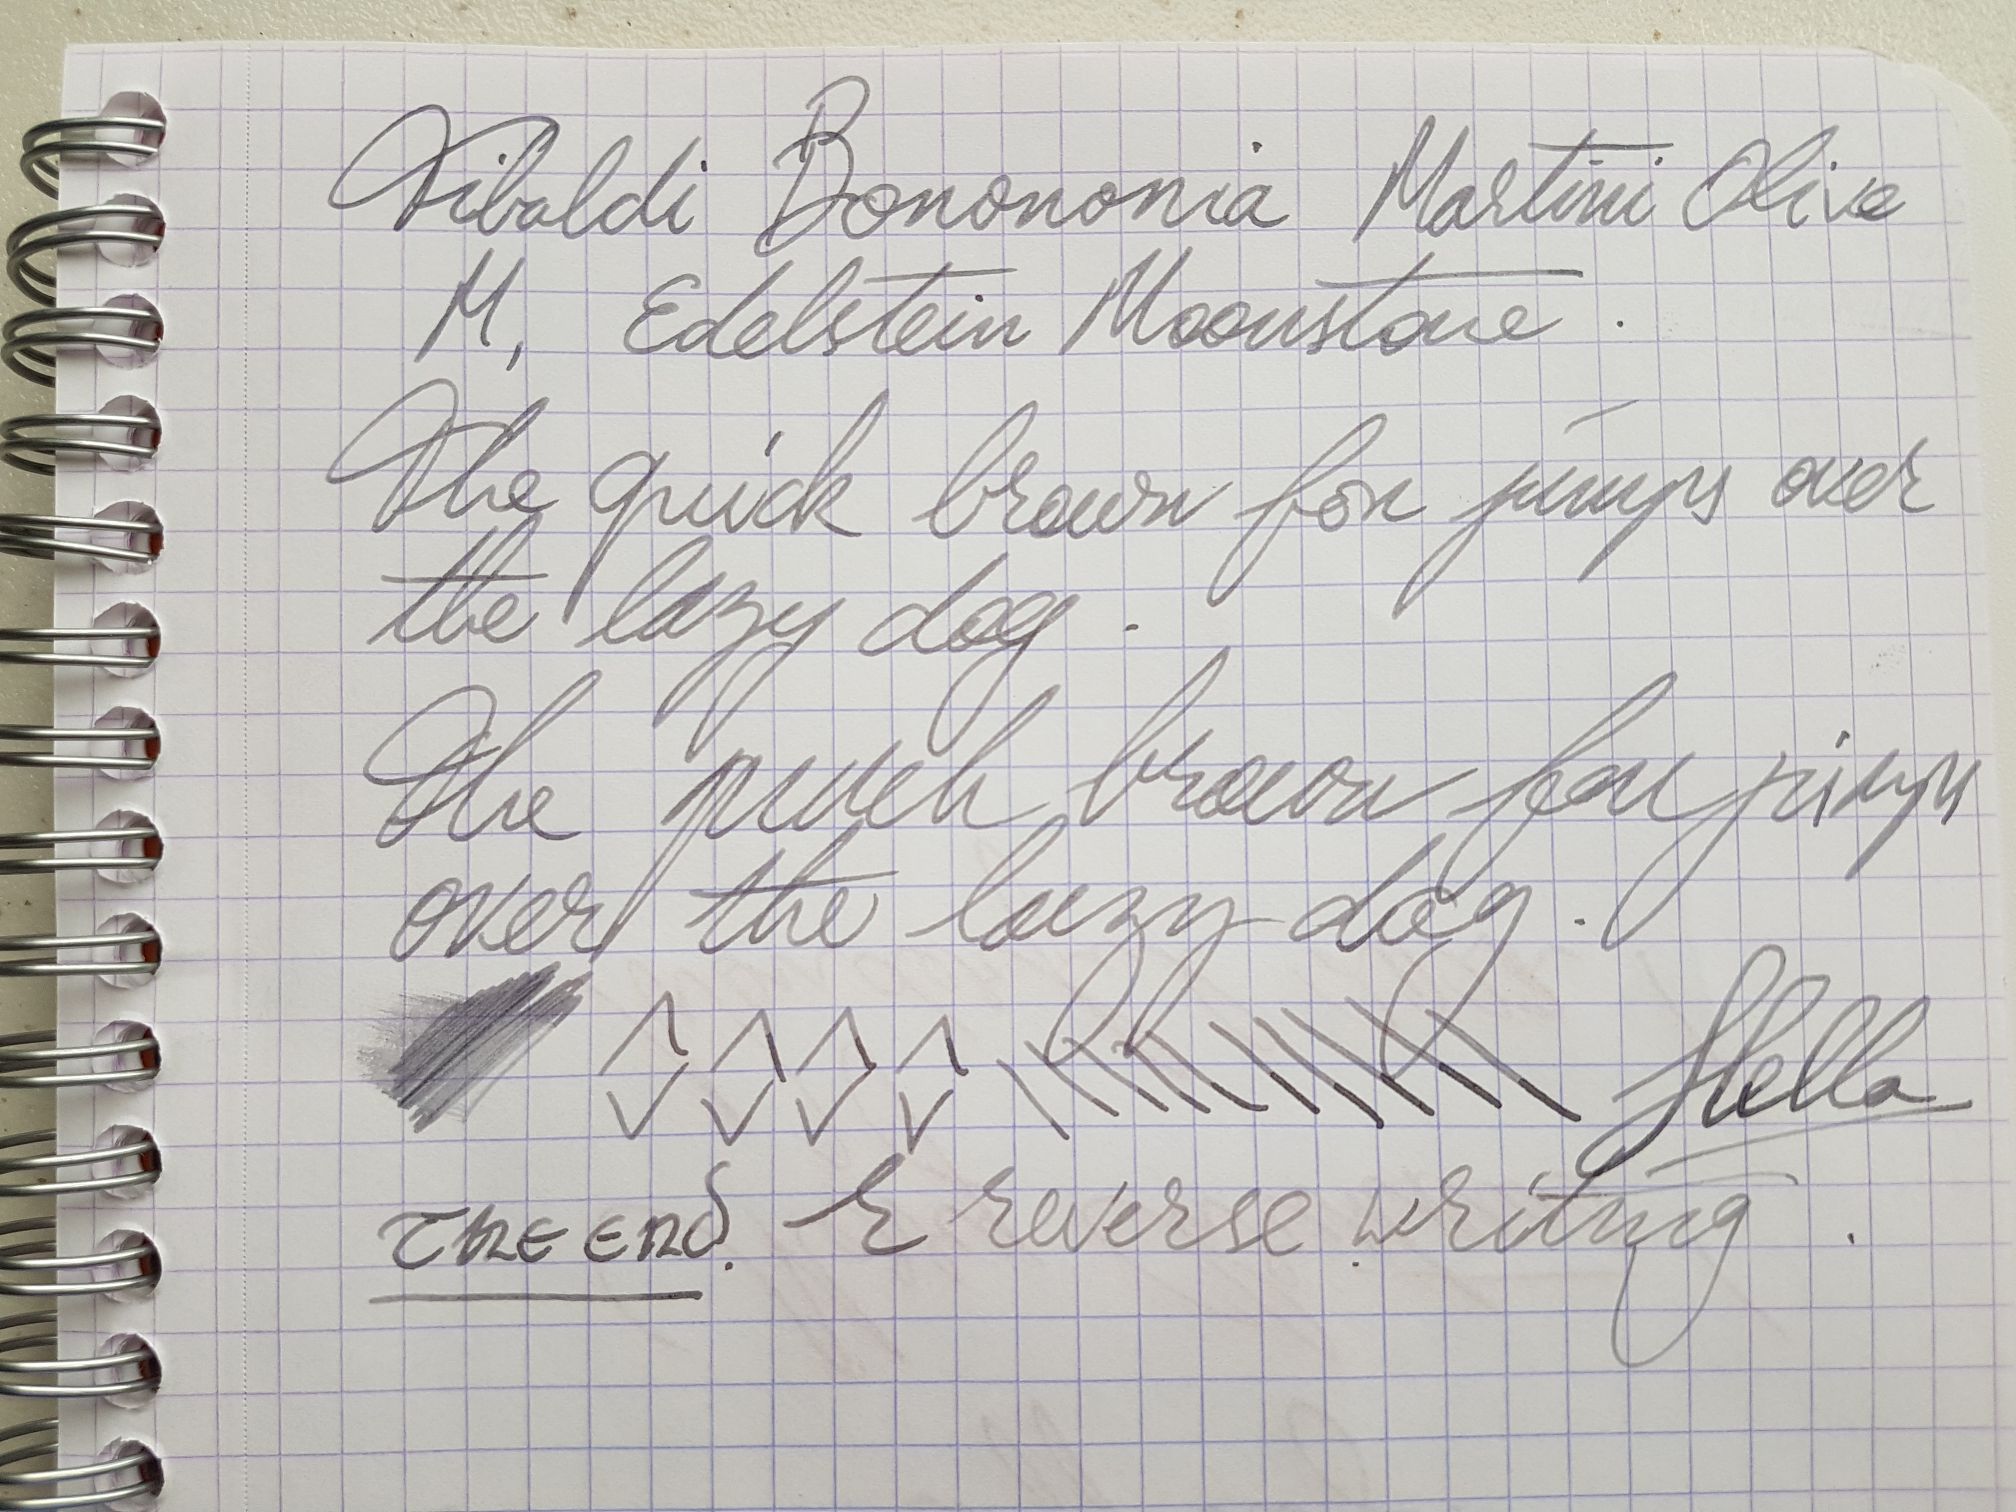 Tibaldi Bonononia Martini Olive
M, Edelstein Moonstone.
The quick brown fox jumps over
the lazy dog.
The quick brown fox jumps
over the lazy dog.
Stella
THE END. & reverse writing.